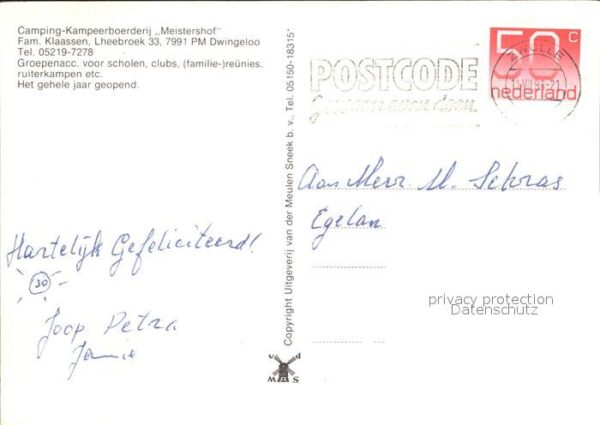 Camping-Kampeerboerderij „Meistershof"
Fam. Klaassen, Lheebroek 33, 7991 PM Dwingeloo
Tel. 05219-7278
Groepenacc. voor scholen, clubs, (familie-)reünies,
ruiterkampen etc.
Het gehele jaar geopend.
Hartelijk Gefeliciteerd!
30
Joop Petra
Jannie
Copyright Uitgeverij van der Meulen Sneek b. v., Tel. 05150-18315*
v d
M S
POSTCODE
Gewoon even doen.
ZWOLLE
50 c
nederland
Aan Mevr M.
Egelan
privacy protection
Datenschutz